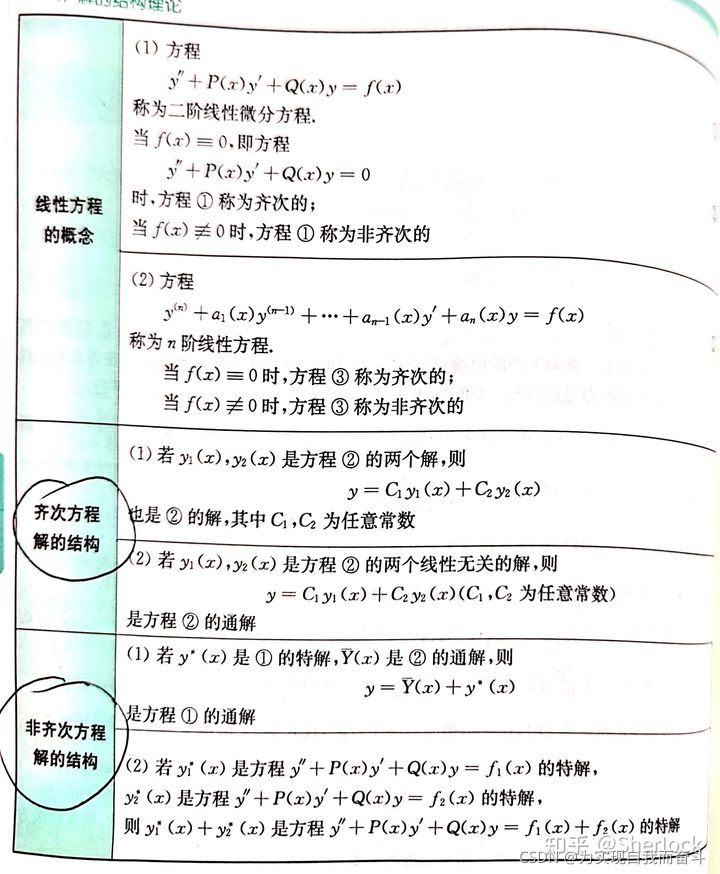 解的结构理论
(1) 方程
y″+P(x)y′+Q(x)y=f(x)
称为二阶线性微分方程.
当 f(x)≡0,即方程
y″+P(x)y′+Q(x)y=0
时,方程 ① 称为齐次的;
当 f(x)≢0时,方程 ① 称为非齐次的
线性方程
的概念
(2) 方程
y⁽ⁿ⁾+a₁(x)y⁽ⁿ⁻¹⁾+⋯+aₙ₋₁(x)y′+aₙ(x)y=f(x)
称为 n 阶线性方程.
当 f(x)≡0 时,方程 ③ 称为齐次的;
当 f(x)≢0 时,方程 ③ 称为非齐次的
齐次方程
解的结构
(1) 若 y₁(x),y₂(x) 是方程 ② 的两个解,则
y=C₁y₁(x)+C₂y₂(x)
也是 ② 的解,其中 C₁,C₂ 为任意常数
(2) 若 y₁(x),y₂(x) 是方程 ② 的两个线性无关的解,则
y=C₁y₁(x)+C₂y₂(x)(C₁,C₂ 为任意常数)
是方程 ② 的通解
非齐次方程
解的结构
(1) 若 y*(x) 是 ① 的特解,Ȳ(x) 是 ② 的通解,则
y=Ȳ(x)+y*(x)
是方程 ① 的通解
(2) 若 y₁*(x) 是方程 y″+P(x)y′+Q(x)y=f₁(x) 的特解,
y₂*(x) 是方程 y″+P(x)y′+Q(x)y=f₂(x) 的特解,
则 y₁*(x)+y₂*(x) 是方程 y″+P(x)y′+Q(x)y=f₁(x)+f₂(x) 的特解
知乎 @Sherlock
CSDN @为实现自我而奋斗